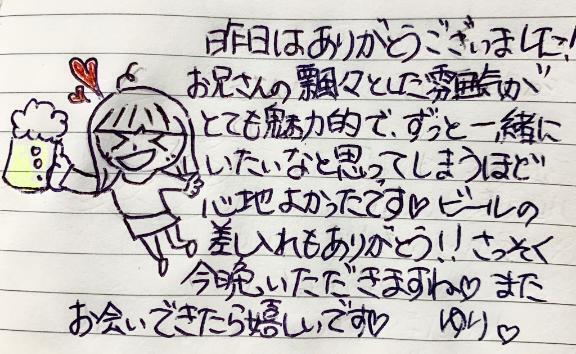 昨日はありがとうございました!
お兄さんの飄々とした雰囲気が
とても魅力的で、ずっと一緒に
いたいなと思ってしまうほど
心地よかったです♡ ビールの
差し入れもありがとう!! さっそく
今晩いただきますね♡ また
お会いできたら嬉しいです♡ ゆり♡